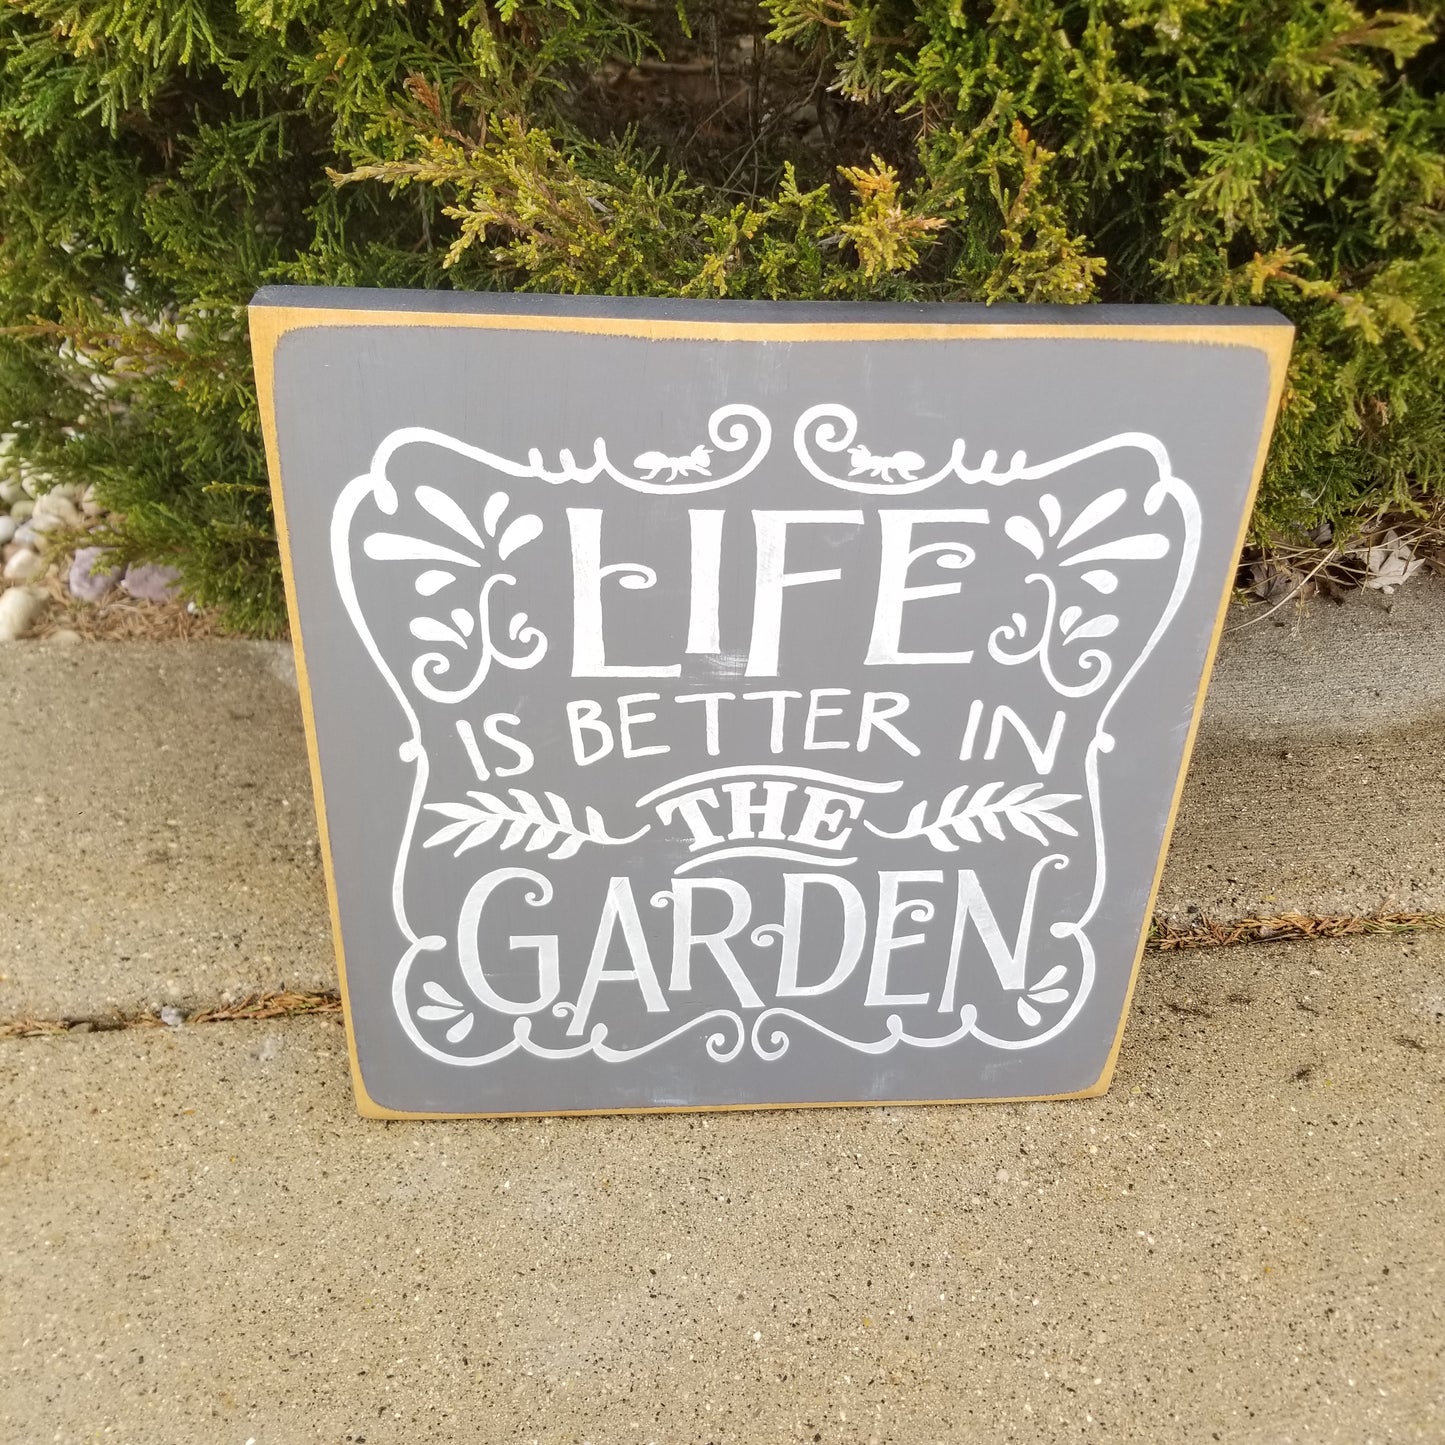 LIFE
IS BETTER IN
THE
GARDEN